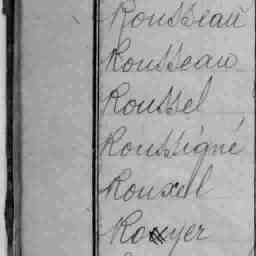 Rousseau
Rousseau
Roussel
Roussigné
Rouxel
Rouyer